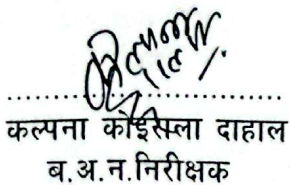 कल्पना कोइराला दाहाल
ब.अ.न.निरीक्षक